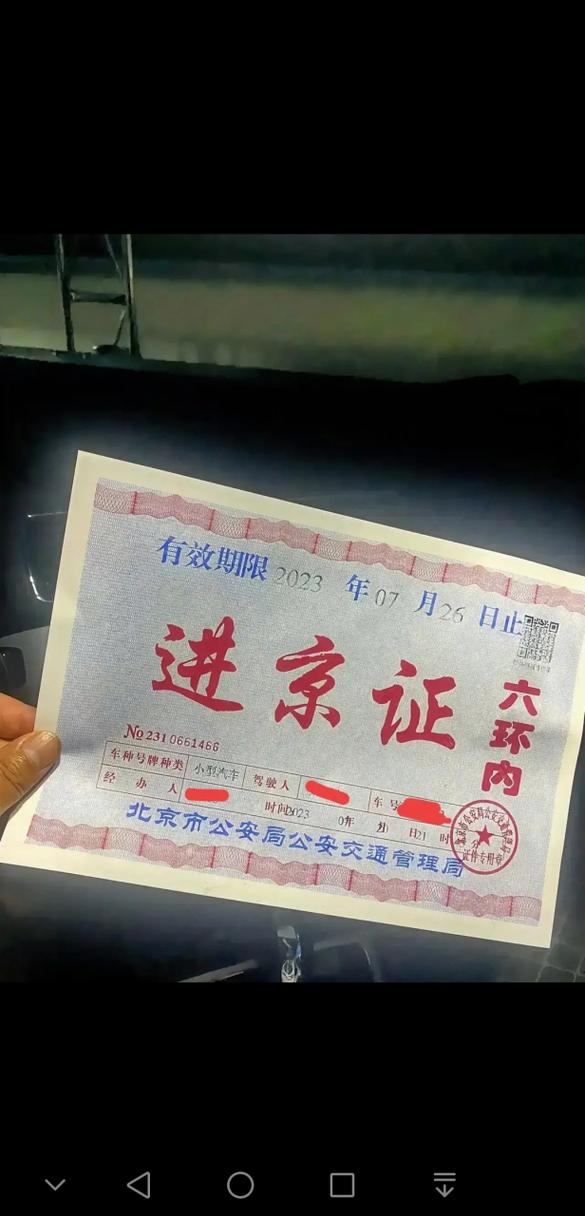 有效期限 2023 年 07 月 26 日止
进京证
六环内
No 2310661466
车种号牌种类 小型汽车 驾驶人 车号
经办人 时间 2023 年 月 日 21 时 分
北京市公安局公安交通管理局
证件专用章